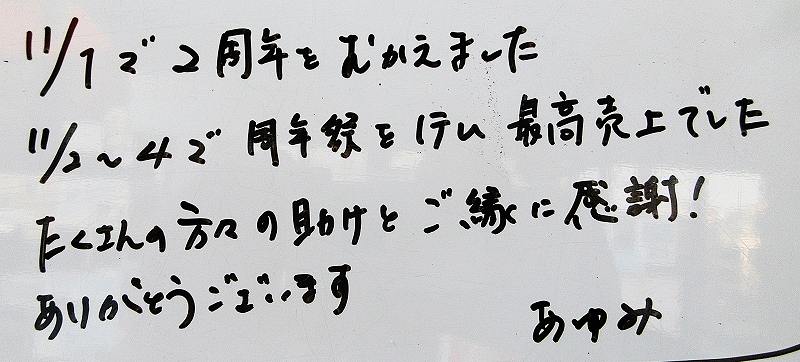 11/1で2周年をむかえました
11/2〜4で 周年祭を行い 最高売上でした
たくさんの方々の助けとご縁に感謝!
ありがとうございます
あゆみ